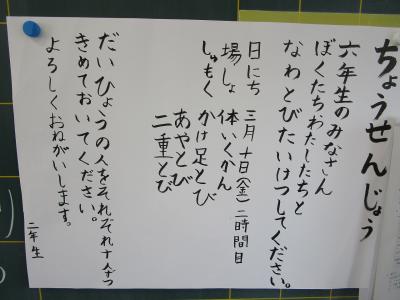 ちょうせんじょう
六年生のみなさん
ぼくたちわたしたちと
なわとびたいけつしてください。
日にち 三月十日(金)二時間目
場しょ 体いくかん
しゅもく かけ足とび
あやとび
二重とび
だいひょうの人をそれぞれ十人ずつ
きめておいてください。
よろしくおねがいします。
二年生